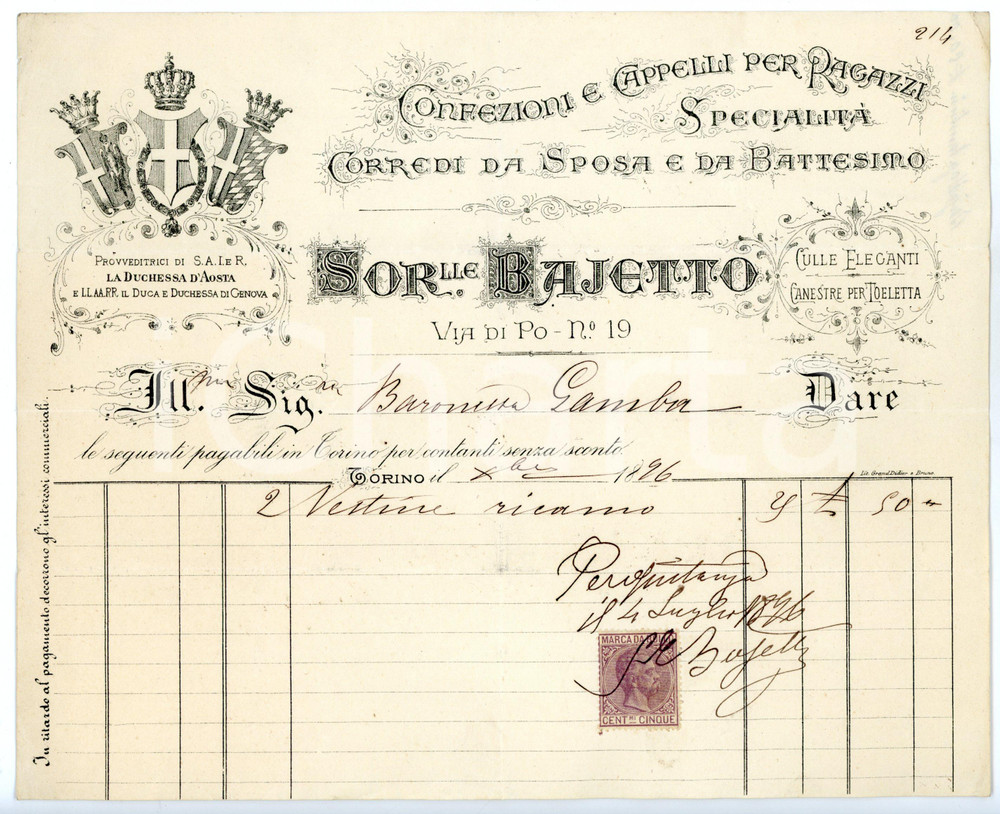 214
CONFEZIONI E CAPPELLI PER RAGAZZI
SPECIALITÀ
CORREDI DA SPOSA E DA BATTESIMO
PROVVEDITRICI DI S.A.I. e R.
LA DUCHESSA D'AOSTA
E LL.AA.RR. IL DUCA E DUCHESSA DI GENOVA
SOR.LLE BAJETTO
VIA DI PO - N.o 19
CULLE ELEGANTI
CANESTRE PER TOELETTA
Ill.ma Sig.ra Baronessa Gamba Dare
le seguenti pagabili in Torino per contanti senza sconto.
TORINO il Xbre 1896
Lit. Grand Didier e Bruno
2 Vestine ricamo 25 £ 50 "
Per quitanza
il 4 Luglio 1896
Bajetto
MARCA DA BOLLO
CENT.MI CINQUE
In ritardo al pagamento decorrono gl'interessi commerciali.
iCharta